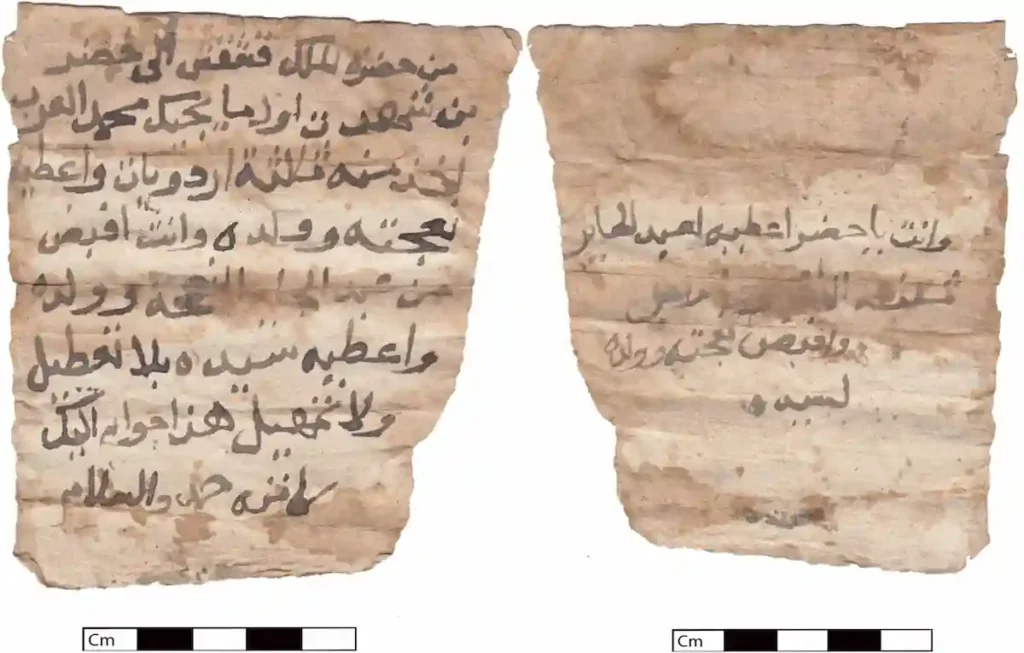 من حضره الملك قشقش الى خضر
بن اول ما يجيك محمد العرب
تاخذ منه ثلثة اردويات واعطيه
نعجته وولده وانت اقبض
من عبد الجابر النعجه وولده
واعطيه سيده بلا تعطيل
ولا تمهيل هذا جوابي اليك
كاتبه حمد والسلام
وانت يا خضر اعطيه لعبد الجابر
ثلثه
واقبض نعجته وولده
لسيده